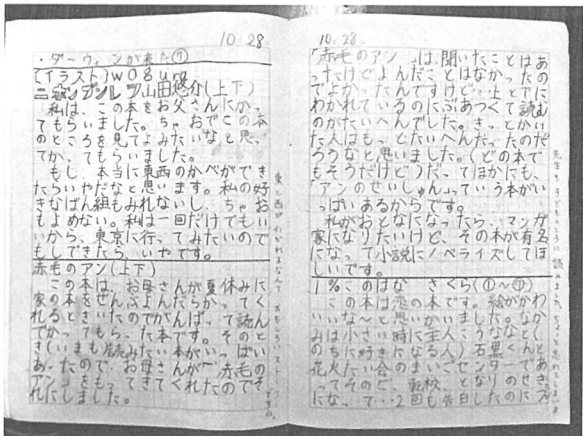 10.28
・ダーウィンが来た⑦
(イラスト)wogura
ニホンブンレツ山田悠介(上下)
私は、この本をお父さんにかっ
てもらいました。ちゃおでこの本
のところを見てよみたいなと思っ
てか、てもらいました。
もし、本当に東西のかべができ
たらいやだなと思います。私の好
きなばん組もみれないし、ちゃお
もよめない。私は一回だけでもい
いから、東京に行ってみたいので
もしできたら、いやです。
赤毛のアン(上下)
この本は、お母さんが夏休みに
家の本をぜんぶよんだらかってく
れるときいたのでがんばって読ん
でかってもらった本です。そのと
き(いまも)読みたい本がいっぱい
あったので、お母さんが「赤毛の
アン」をもってきてくれたのでそ
れにしました。
10.28
「赤毛のアン」は、聞いたことはあ
ったけどよんだことはなかったの
でよかったんですけど…上と下に
わかれているのにぶあつくて読む
のがたいへんでした。きっとかい
た人はもっとたいへんだったのだ
ろうなと思いました。(どの本で
もそうだけど)だってほかにも、
「アンのせいしゅん」っていう本がい
っぱいあるからです。
私がおとなになったら、マンガ
家になりたいけど、その本が有名
になって小説にノベライズしてほ
しいです。
1%このはな さくら(①〜①)
この本は恋の本です。絵がかわ
いいな〜と思いかいました。なか
みは小さい時に主人こうななとし
のちに好きになる人)石黒くんと
花火大会のまいごセンターであ
ってそのご、転校、となりのせき
になって…2回も告白したのにス